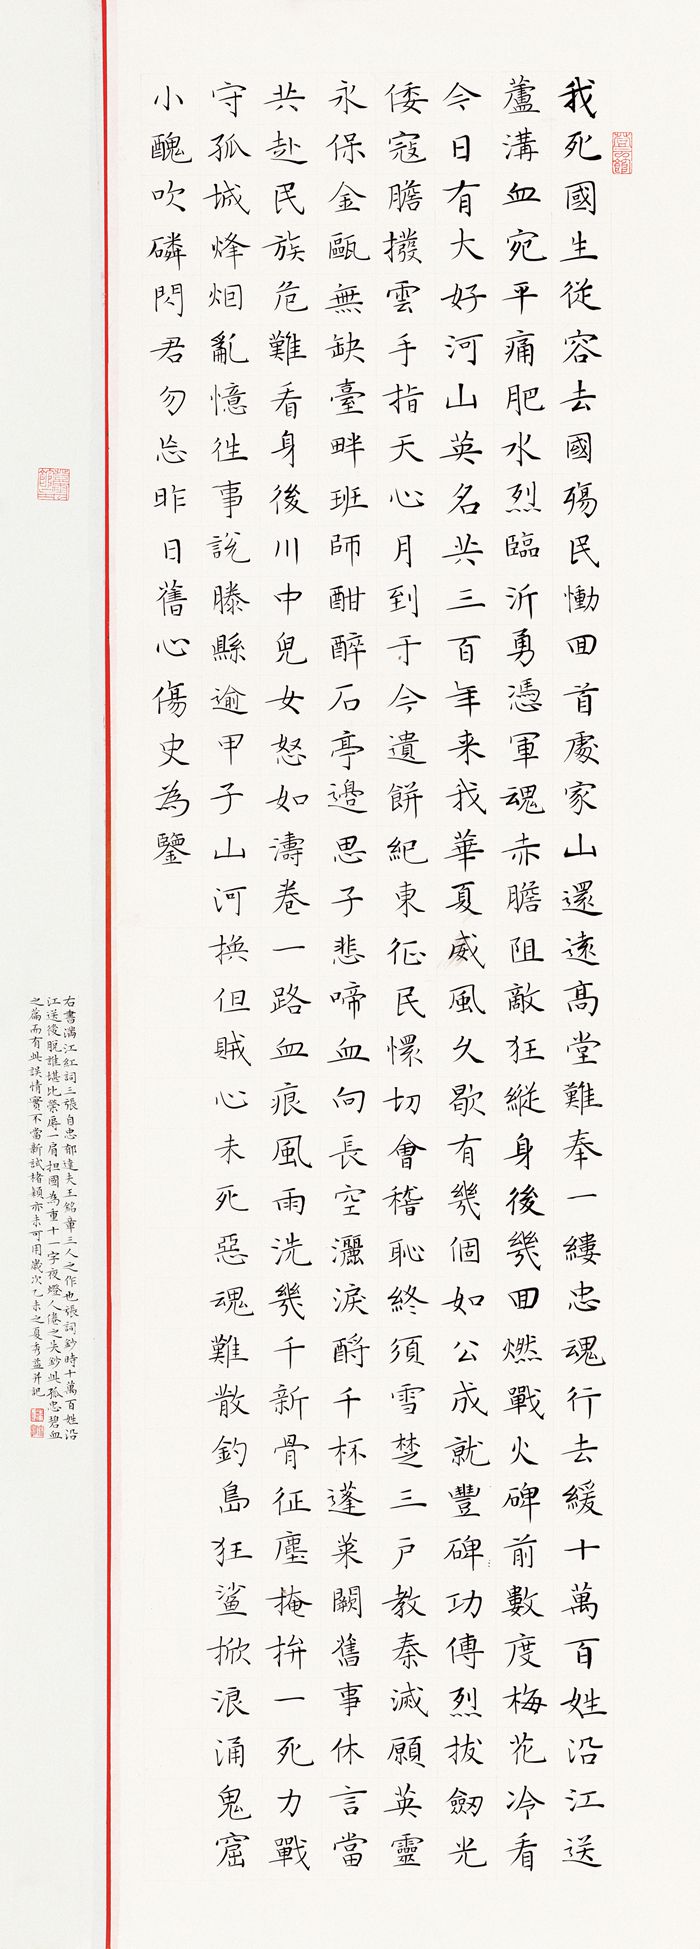 我死國生從容去國殤民慟囬首處家山還遠高堂難奉一縷忠魂行去緩十萬百姓沿江送
蘆溝血宛平痛肥水烈臨沂勇憑軍魂赤膽阻敵狂縱身後幾囬燃戰火碑前數度梅花冷看
今日有大好河山英名共三百年来我華夏威風久歇有幾個如公成就豐碑功傳烈拔劍光
倭寇膽撥雲手指天心月到于今遺餅紀東征民懷切會稽恥終須雪楚三戶教秦滅願英靈
永保金甌無缺臺畔班師酣醉石亭邊思子悲啼血向長空灑淚酹千杯蓬萊闕舊事休言當
共赴民族危難看身後川中兒女怒如濤卷一路血痕風雨洗幾千新骨征塵掩拚一死力戰
守孤城烽烟亂憶往事說滕縣逾甲子山河換但賊心未死惡魂難散釣島狂鯊掀浪涌鬼窟
小醜吹磷閃君勿忘昨日舊心傷史為鑒
右書滿江紅詞三張自忠郁達夫王銘章三人之作也張詞鈔時十萬百姓沿
江送後脫誰堪比榮辱一肩担國為重十一字夜燈人倦之失鈔與孤忠碧血
之篇而有此誤情實不當新試楮穎亦未可用歲次乙未之夏秀益并記